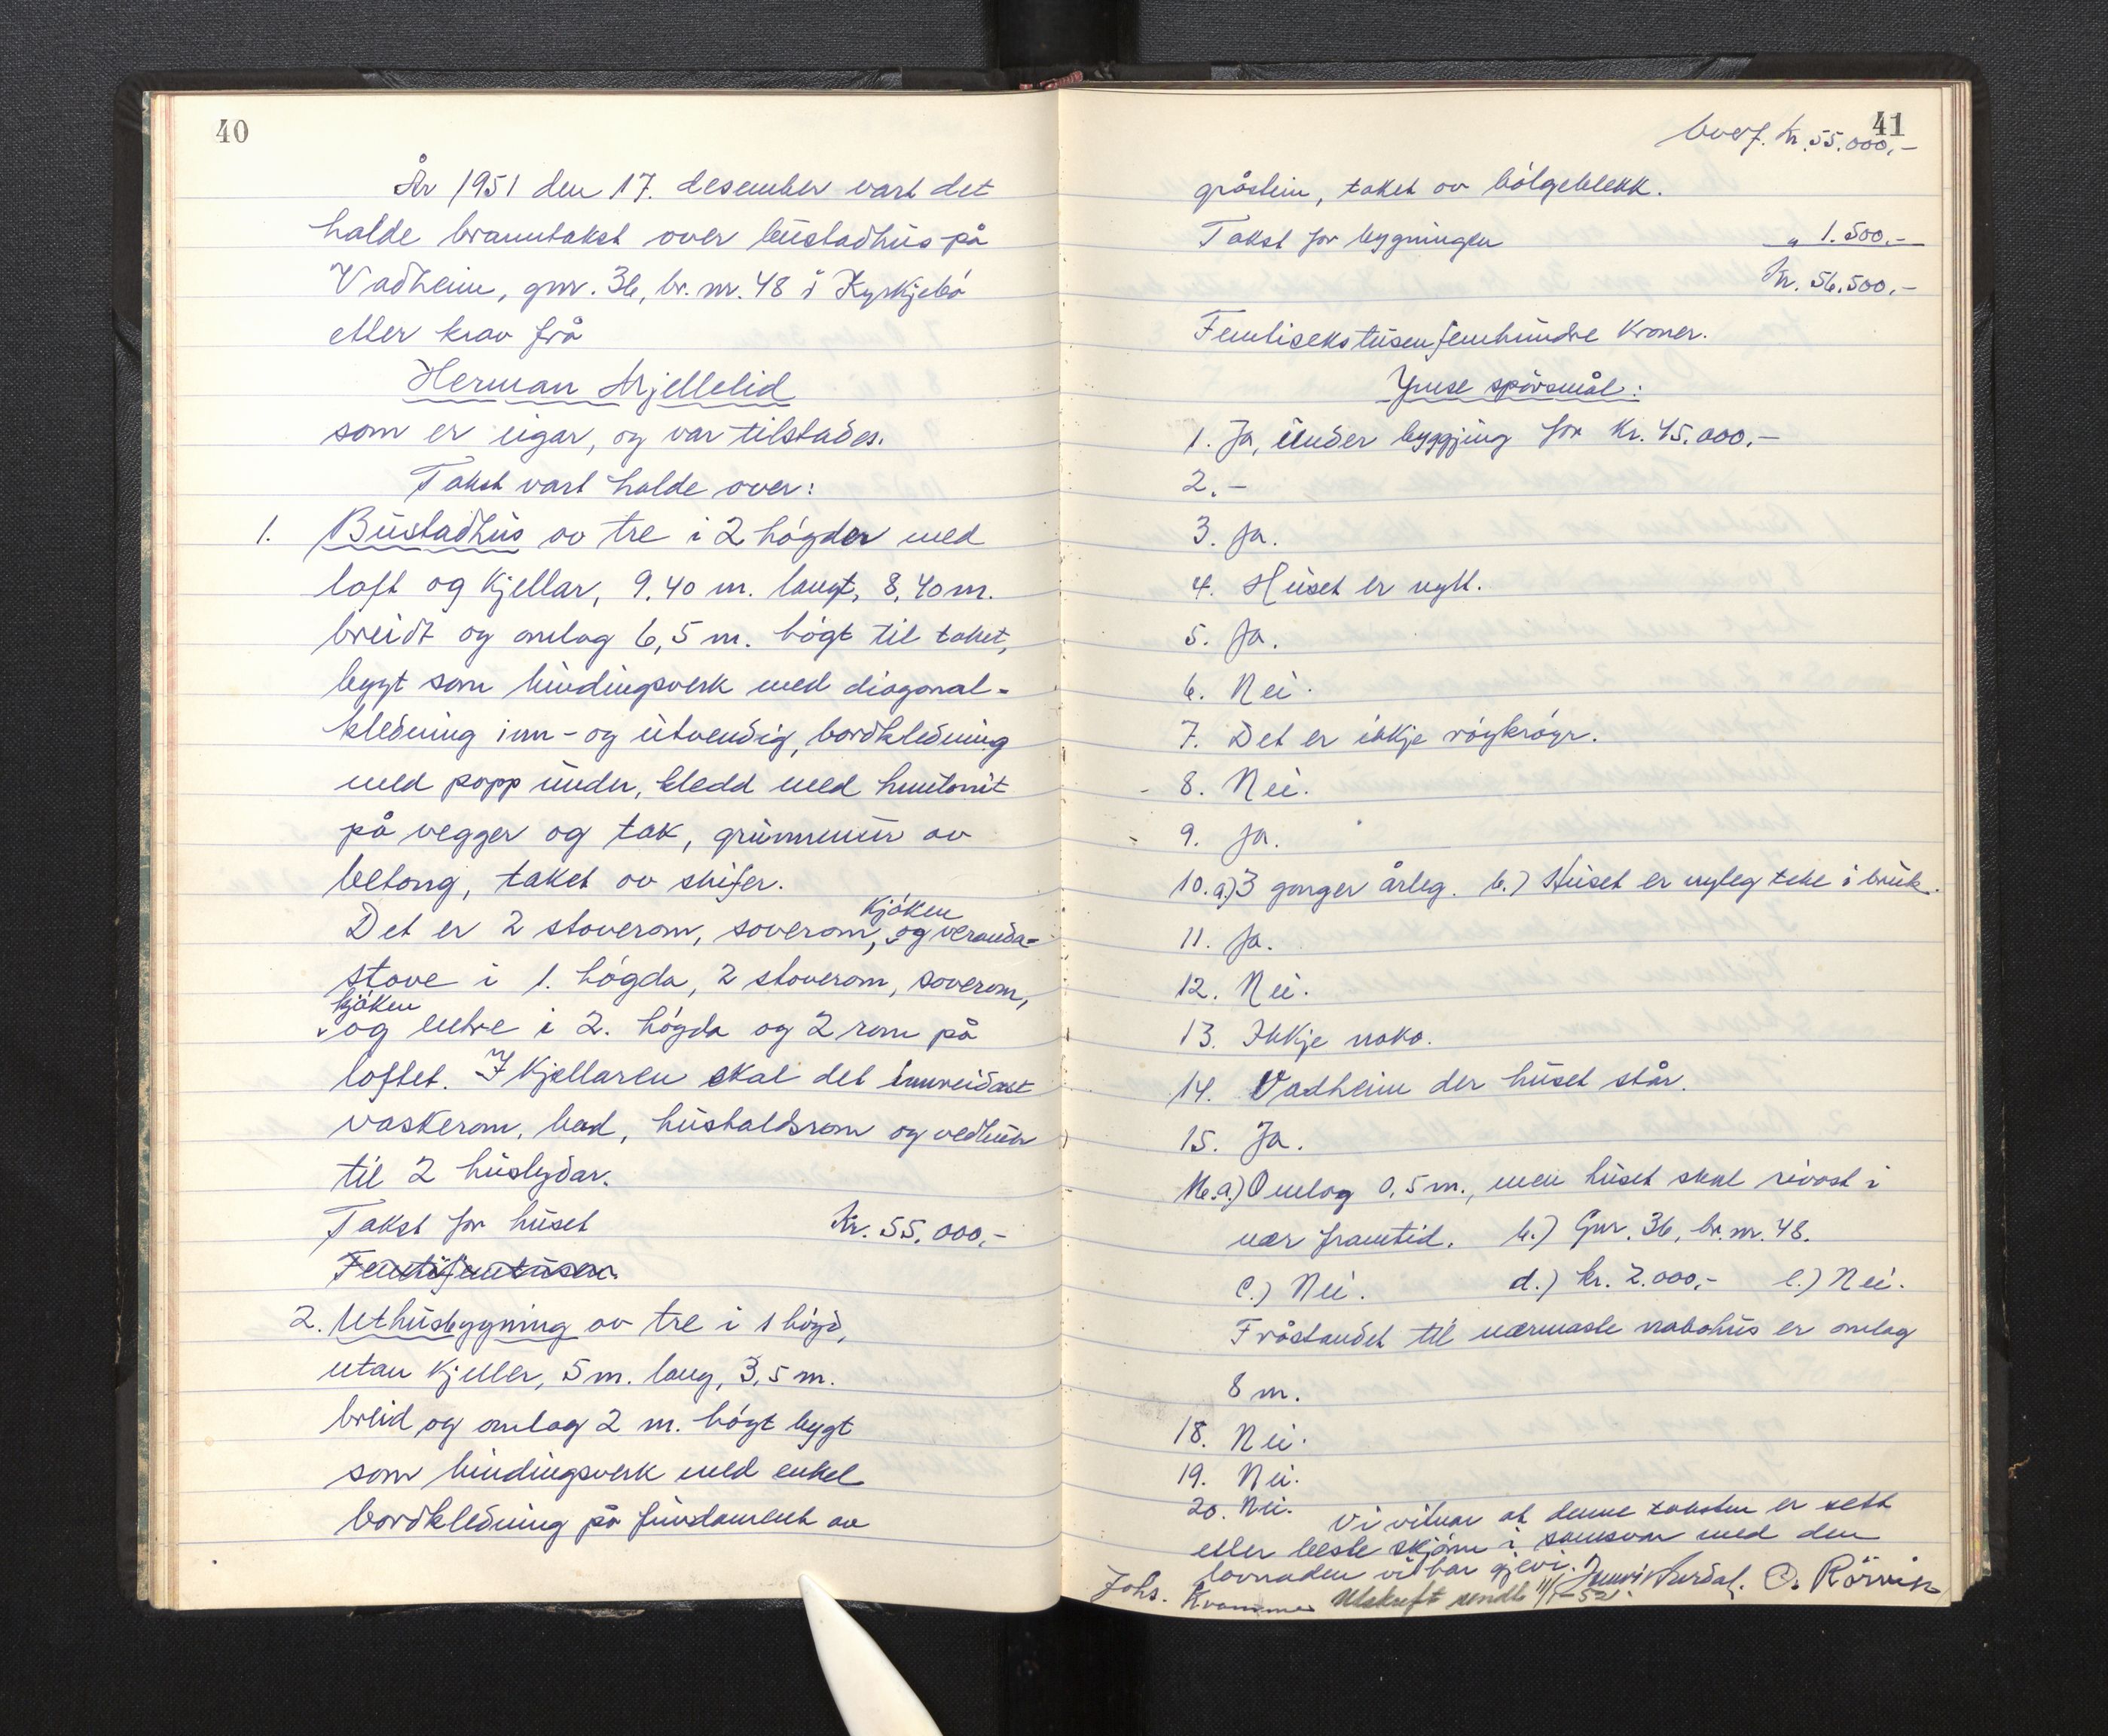 40
År 1951 den 17. desember vart det
halde branntakst over bustadhus på
Vadheim, gnr. 36, br. nr. 48 i Kyrkjebø
etter krav frå
Herman Mjellelid
som er eigar, og var tilstades.
Takst vart halde over:
1. Bustadhus av tre i 2 högder med
loft og kjellar, 9,40 m. langt, 8,40 m.
breidt og omlag 6,5 m. högt til taket,
bygt som bindingsverk med diagonal-
kledning inn- og utvendig, bordkledning
med papp under, kledd med huntonit
på vegger og tak, grunnmur av
betong, taket av skifer.
Det er 2 stoverom, soverom, kjöken og veranda-
stove i 1. högda, 2 stoverom, soverom,
kjöken og entre i 2. högda og 2 rom på
loftet. I kjellaren skal det innreidast
vaskerom, bad, hushaldsrom og vedbur
til 2 huslydar.
Takst for huset Kr. 55.000,-
Femtifemtusen.
2. Uthusbygning av tre i 1 högd,
utan kjeller, 5 m. lang, 3,5 m.
breid og omlag 2 m. högt bygt
som bindingsverk med enkel
bordkledning på fundament av
41
Overf. Kr. 55.000,-
gråstein, taket av bölgeblekk.
Takst for bygningen " 1.500,-
Kr. 56.500,-
Femtisekstusenfemhundre kroner.
Ymse spörsmål:
1. Ja, under bygging for kr. 45.000,-
2. -
3. Ja.
4. Huset er nytt.
5. Ja.
6. Nei.
7. Det er ikkje röykröyr.
8. Nei.
9. Ja.
10. a.) 3 gonger årleg. b.) Huset er nyleg teke i bruk.
11. Ja.
12. Nei.
13. Ikkje noko.
14. Vadheim der huset står.
15. Ja.
16. a.) Omlag 0,5 m., men huset skal rivast i
nær framtid. b.) Gnr. 36, br. nr. 48.
c.) Nei. d.) kr. 2.000,- e.) Nei.
Fråstandet til nærmaste nabohus er omlag
8 m.
18. Nei.
19. Nei.
20. Nei. Vi vitnar at denne taksten er sett
etter beste skjönn i samsvar med den
lovnaden vi har gjevi. Aurdal. O. Rörvik
Johs. Kvamme Utskrift sendt 11/1-52.